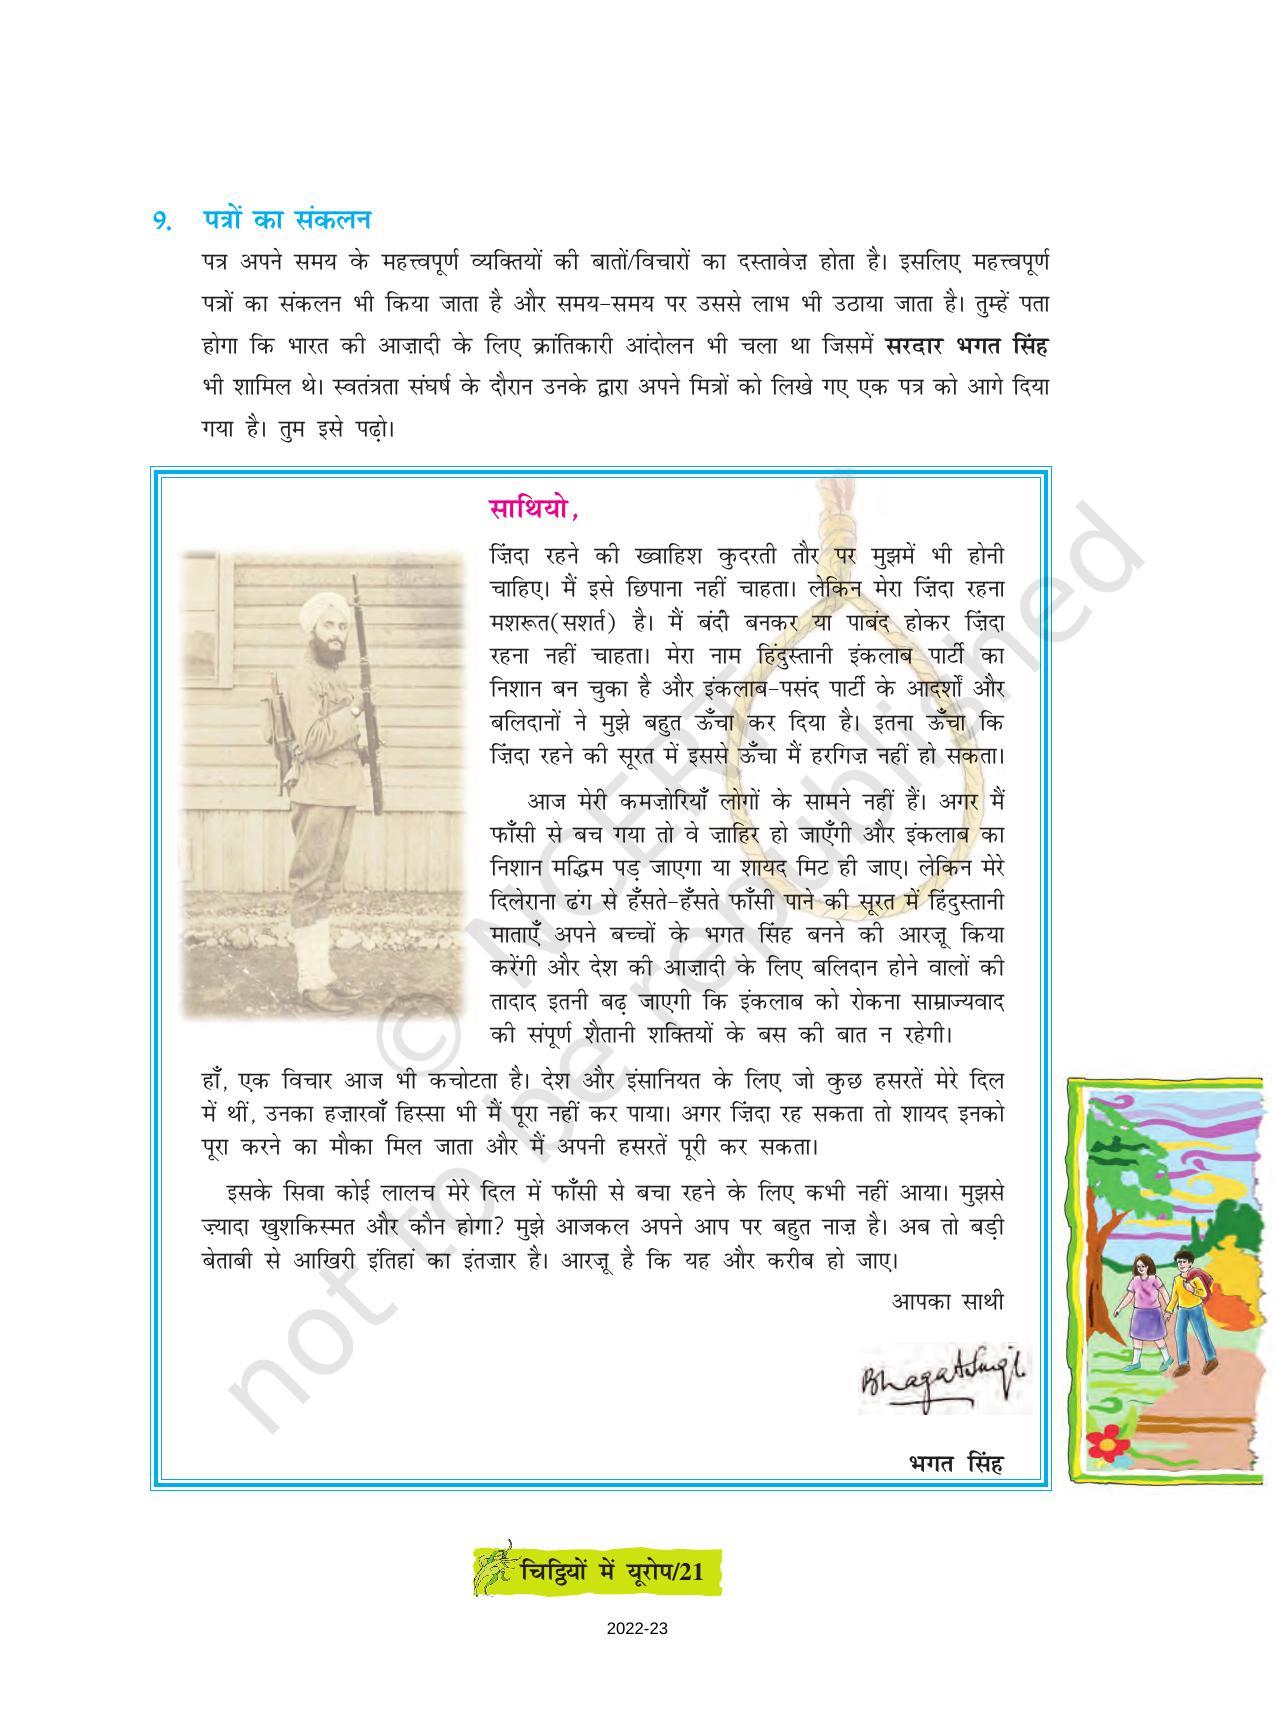 9. पत्रों का संकलन
पत्र अपने समय के महत्त्वपूर्ण व्यक्तियों की बातों/विचारों का दस्तावेज़ होता है। इसलिए महत्त्वपूर्ण
पत्रों का संकलन भी किया जाता है और समय-समय पर उससे लाभ भी उठाया जाता है। तुम्हें पता
होगा कि भारत की आज़ादी के लिए क्रांतिकारी आंदोलन भी चला था जिसमें सरदार भगत सिंह
भी शामिल थे। स्वतंत्रता संघर्ष के दौरान उनके द्वारा अपने मित्रों को लिखे गए एक पत्र को आगे दिया
गया है। तुम इसे पढ़ो।
साथियो,
ज़िंदा रहने की ख्वाहिश कुदरती तौर पर मुझमें भी होनी
चाहिए। मैं इसे छिपाना नहीं चाहता। लेकिन मेरा ज़िंदा रहना
मशरूत(सशर्त) है। मैं बंदी बनकर या पाबंद होकर ज़िंदा
रहना नहीं चाहता। मेरा नाम हिंदुस्तानी इंकलाब पार्टी का
निशान बन चुका है और इंकलाब-पसंद पार्टी के आदर्शों और
बलिदानों ने मुझे बहुत ऊँचा कर दिया है। इतना ऊँचा कि
ज़िंदा रहने की सूरत में इससे ऊँचा मैं हरगिज़ नहीं हो सकता।
आज मेरी कमज़ोरियाँ लोगों के सामने नहीं हैं। अगर मैं
फाँसी से बच गया तो वे ज़ाहिर हो जाएँगी और इंकलाब का
निशान मद्धिम पड़ जाएगा या शायद मिट ही जाए। लेकिन मेरे
दिलेराना ढंग से हँसते-हँसते फाँसी पाने की सूरत में हिंदुस्तानी
माताएँ अपने बच्चों के भगत सिंह बनने की आरज़ू किया
करेंगी और देश की आज़ादी के लिए बलिदान होने वालों की
तादाद इतनी बढ़ जाएगी कि इंकलाब को रोकना साम्राज्यवाद
की संपूर्ण शैतानी शक्तियों के बस की बात न रहेगी।
हाँ, एक विचार आज भी कचोटता है। देश और इंसानियत के लिए जो कुछ हसरतें मेरे दिल
में थीं, उनका हज़ारवाँ हिस्सा भी मैं पूरा नहीं कर पाया। अगर ज़िंदा रह सकता तो शायद इनको
पूरा करने का मौका मिल जाता और मैं अपनी हसरतें पूरी कर सकता।
इसके सिवा कोई लालच मेरे दिल में फाँसी से बचा रहने के लिए कभी नहीं आया। मुझसे
ज़्यादा खुशकिस्मत और कौन होगा? मुझे आजकल अपने आप पर बहुत नाज़ है। अब तो बड़ी
बेताबी से आखिरी इंतिहां का इंतज़ार है। आरज़ू है कि यह और करीब हो जाए।
आपका साथी
Bhagat Singh
भगत सिंह
© NCERT
not to be republished
चिट्ठियों में यूरोप/21
2022-23